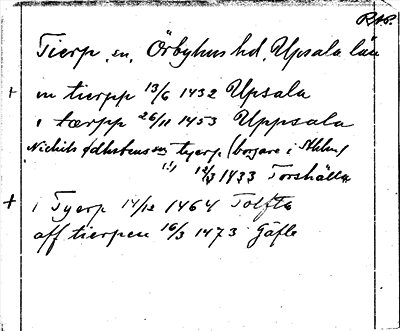 R.A.P.
Tierp, sn, Örbyhus hd, Upsala län
+ in tierpp 13/6 1432 Upsala
i tærpp 26/11 1453 Uppsala
tyerp (borgare i Sthlm)
(!) 12/3 1433 Torshälla
+ i Tyerp 14/12 1464 Tolfta
aff tierpen 16/3 1473 Gäfle